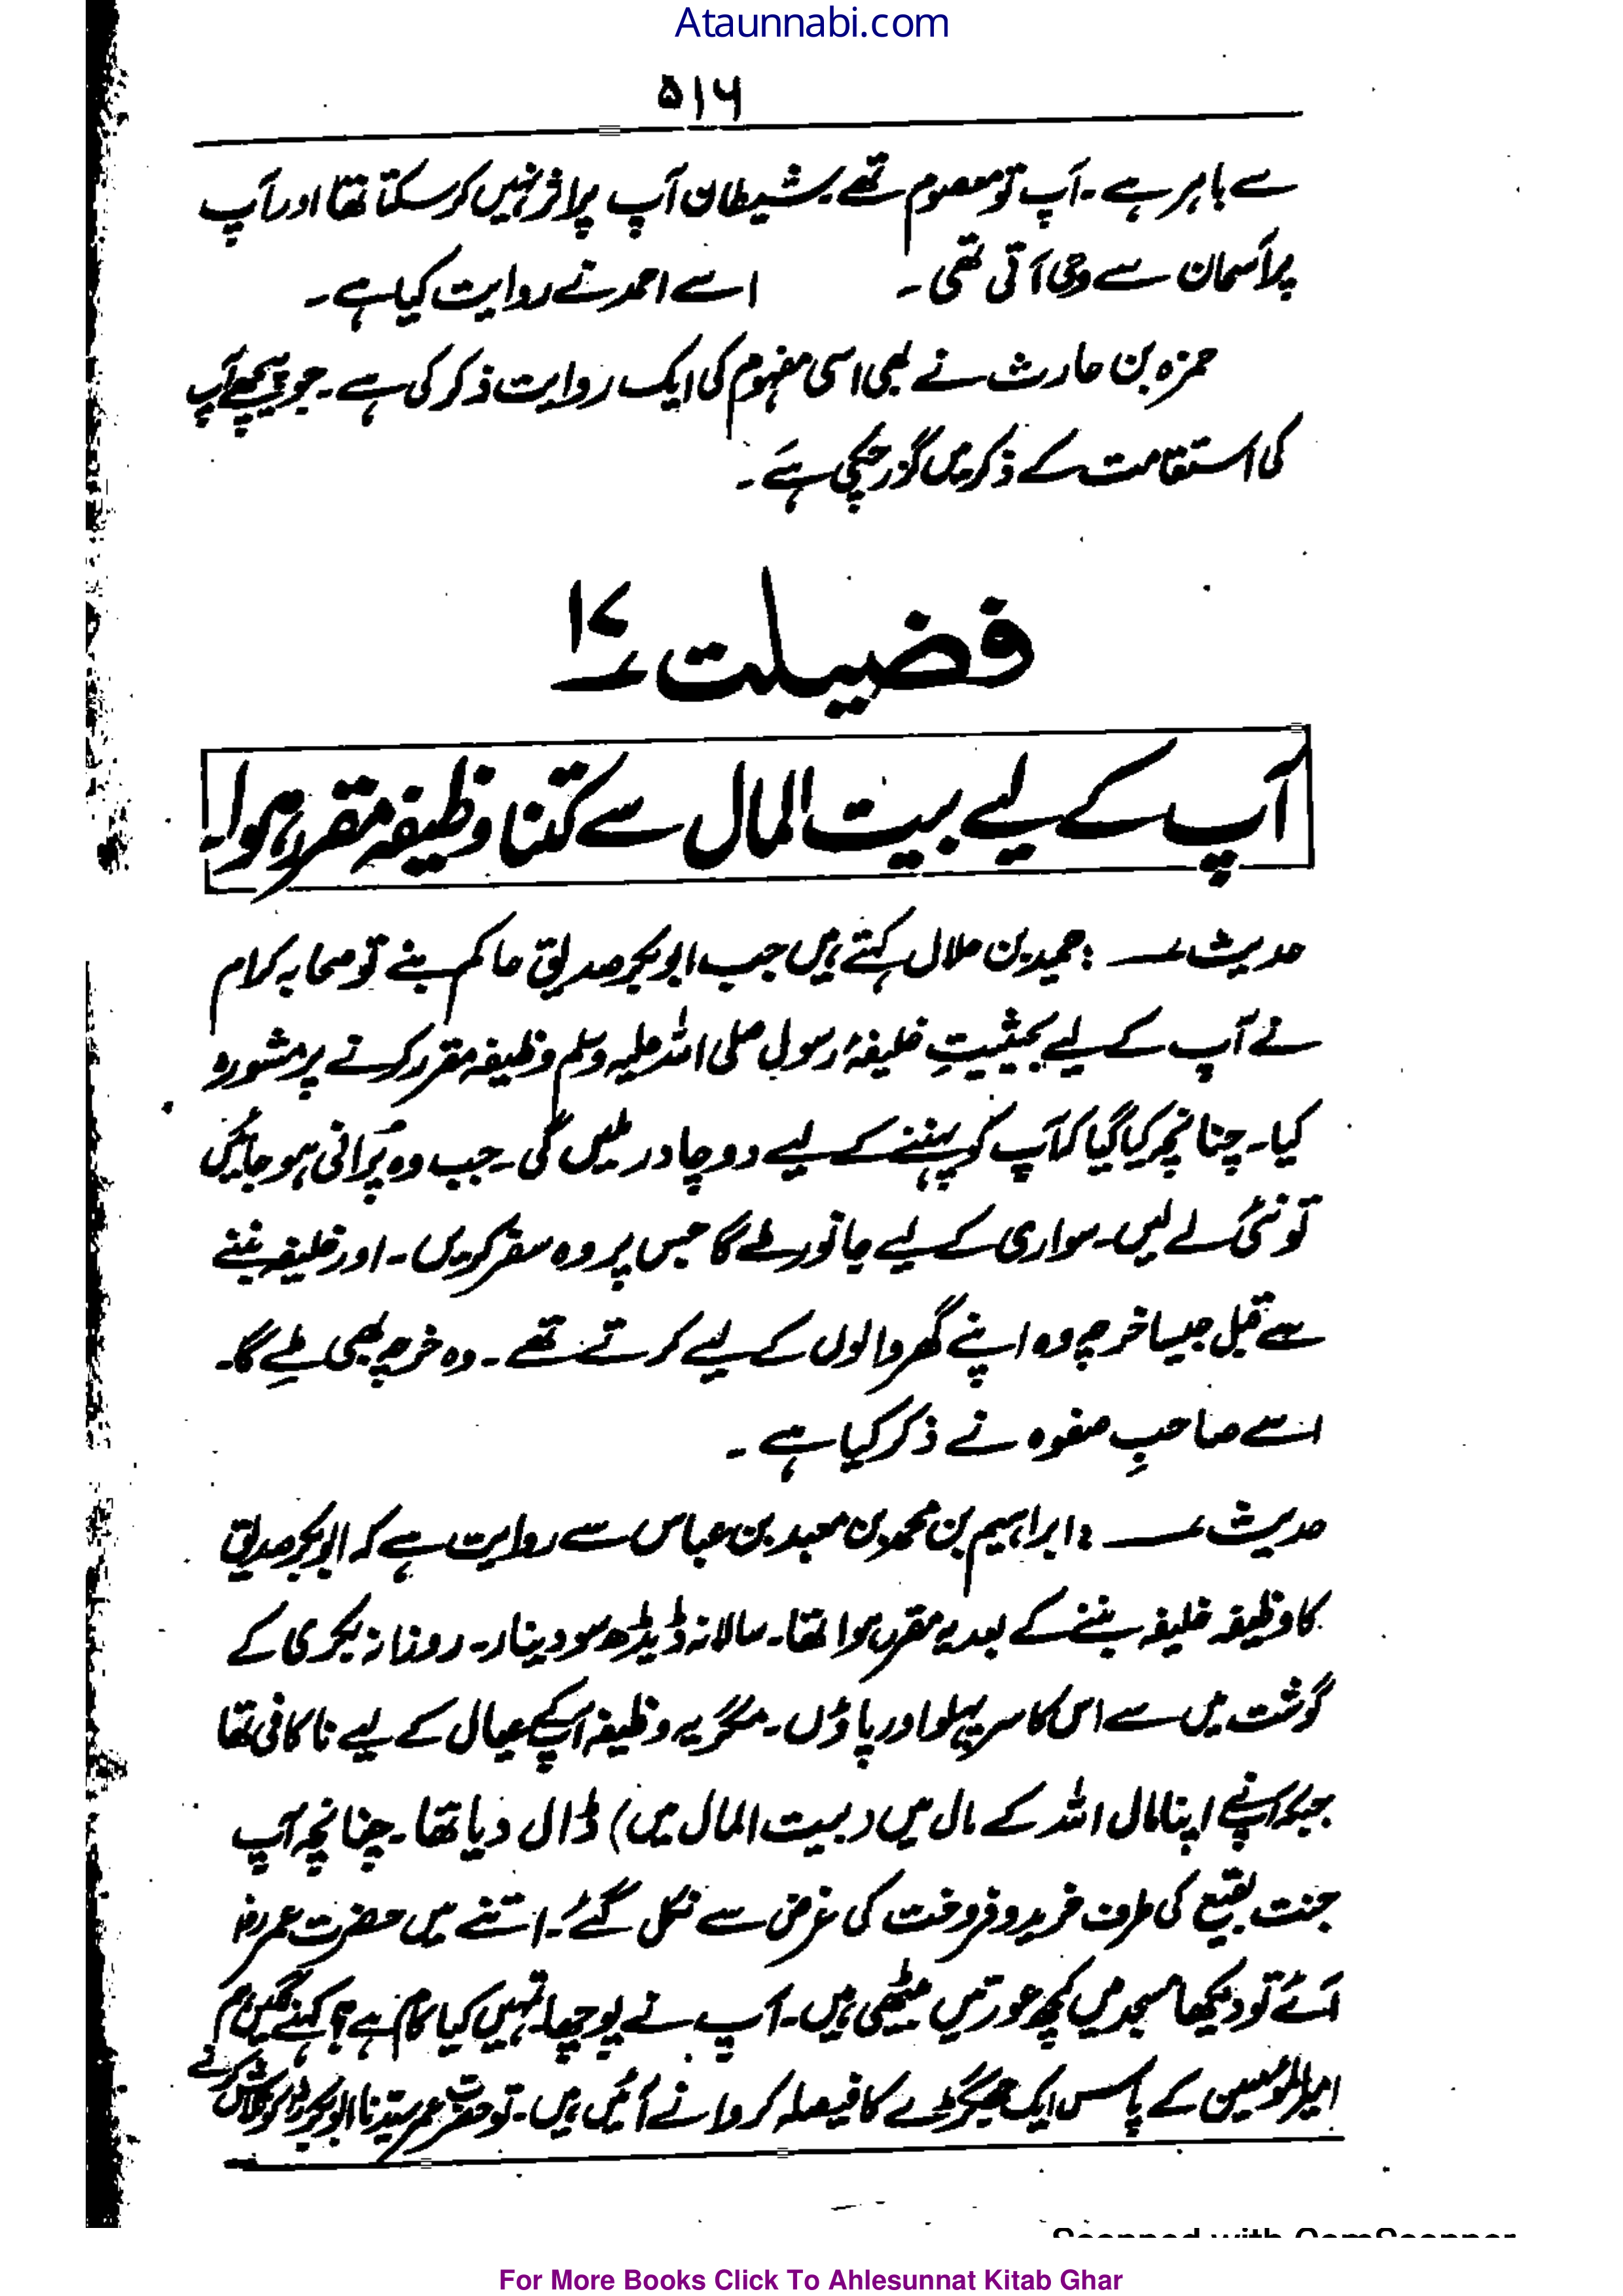 Ataunnabi.com
۵۱۶
سے باہر ہے۔ آپ تو معصوم تھے۔ شیطان آپ پر اثر نہیں کر سکتا تھا اور آپ
پر آسمان سے وحی آتی تھی۔ اسے احمد نے روایت کیا ہے۔
حمزہ بن حارث نے بھی اسی مفہوم کی ایک روایت ذکر کی ہے۔ جو پیچھے آپ
کی استقامت کے ذکر میں گذر چکی ہے۔
فضیلت ۱۷
آپ کے لیے بیت المال سے کتنا وظیفہ مقرر ہوا۔
حدیث : حمید بن ھلال کہتے ہیں جب ابوبکر صدیق حاکم بنے تو صحابہ کرام
نے آپ کے لیے بحیثیتِ خلیفۂ رسول صلی اللہ علیہ وسلم وظیفہ مقرر کرنے پر مشورہ
کیا۔ چنانچہ کہا گیا کہ آپ کو پہننے کے لیے دو چادر ملیں گی۔ جب وہ پُرانی ہو جائیں
تو نئی لے لیں۔ سواری کے لیے جانور ملے گا جس پر وہ سفر کریں۔ اور خلیفہ بننے
سے قبل جیسا خرچہ وہ اپنے گھر والوں کے لیے کرتے تھے۔ وہ خرچہ بھی ملے گا۔
اسے صاحبِ صفوہ نے ذکر کیا ہے۔
حدیث : ابراہیم بن محمد بن معبد بن عباس سے روایت ہے کہ ابوبکر صدیق
کا وظیفہ خلیفہ بننے کے بعد یہ مقرر ہوا تھا۔ سالانہ ڈیڑھ سو دینار۔ روزانہ بکری کے
گوشت میں سے اس کا سر پہلو اور پاؤں۔ مگر یہ وظیفہ آپکے عیال کے لیے ناکافی تھا
جبکہ آپنے اپنا مال اللہ کے مال میں (بیت المال میں) ڈال دیا تھا۔ چنانچہ آپ
جنت بقیع کی طرف خرید و فروخت کی غرض سے نکل گئے۔ اتنے میں حضرت عمرؓ
آئے تو دیکھا مسجد میں کچھ عورتیں بیٹھی ہیں۔ آپ نے پوچھا تمہیں کیا کام ہے؟ کہنے لگیں ہم
امیرالمومنین کے پاس ایک جھگڑے کا فیصلہ کروانے آئیں ہیں۔ تو حضرت عمر سیدنا ابوبکرؓ کو تلاش کرنے
For More Books Click To Ahlesunnat Kitab Ghar